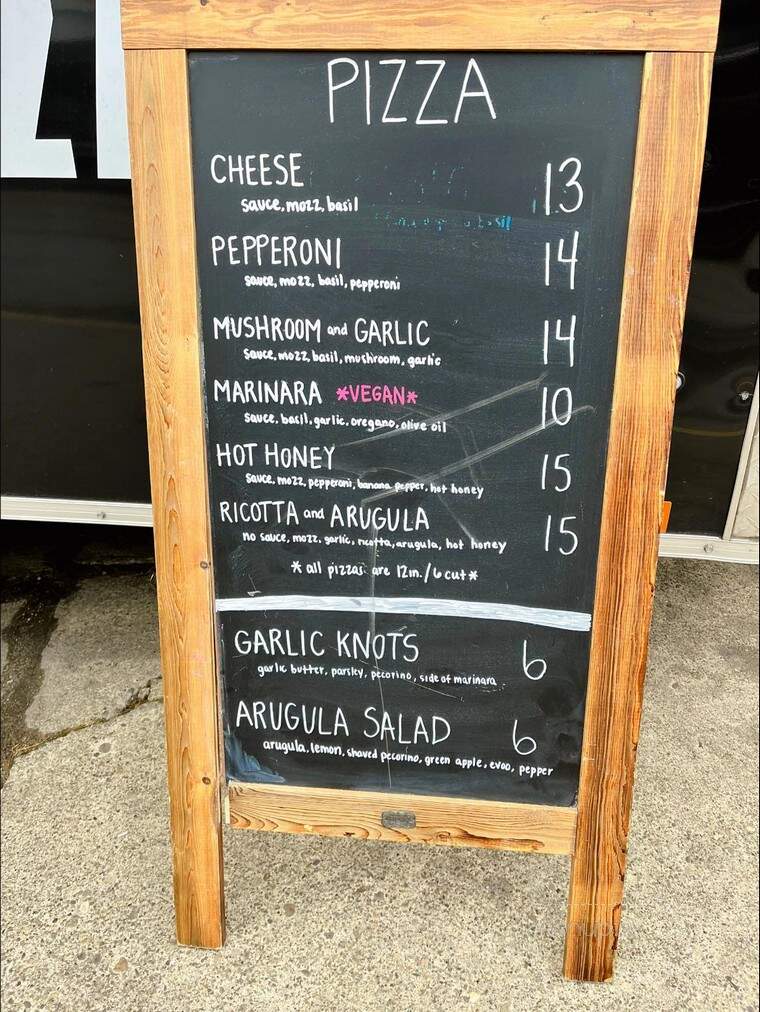 PIZZA
CHEESE 13
sauce, mozz, basil
PEPPERONI 14
sauce, mozz, basil, pepperoni
MUSHROOM and GARLIC 14
sauce, mozz, basil, mushroom, garlic
MARINARA *VEGAN* 10
sauce, basil, garlic, oregano, olive oil
HOT HONEY 15
sauce, mozz, pepperoni, banana pepper, hot honey
RICOTTA and ARUGULA 15
no sauce, mozz, garlic, ricotta, arugula, hot honey
* all pizzas are 12in./6 cut *
GARLIC KNOTS 6
garlic butter, parsley, pecorino, side of marinara
ARUGULA SALAD 6
arugula, lemon, shaved pecorino, green apple, evoo, pepper